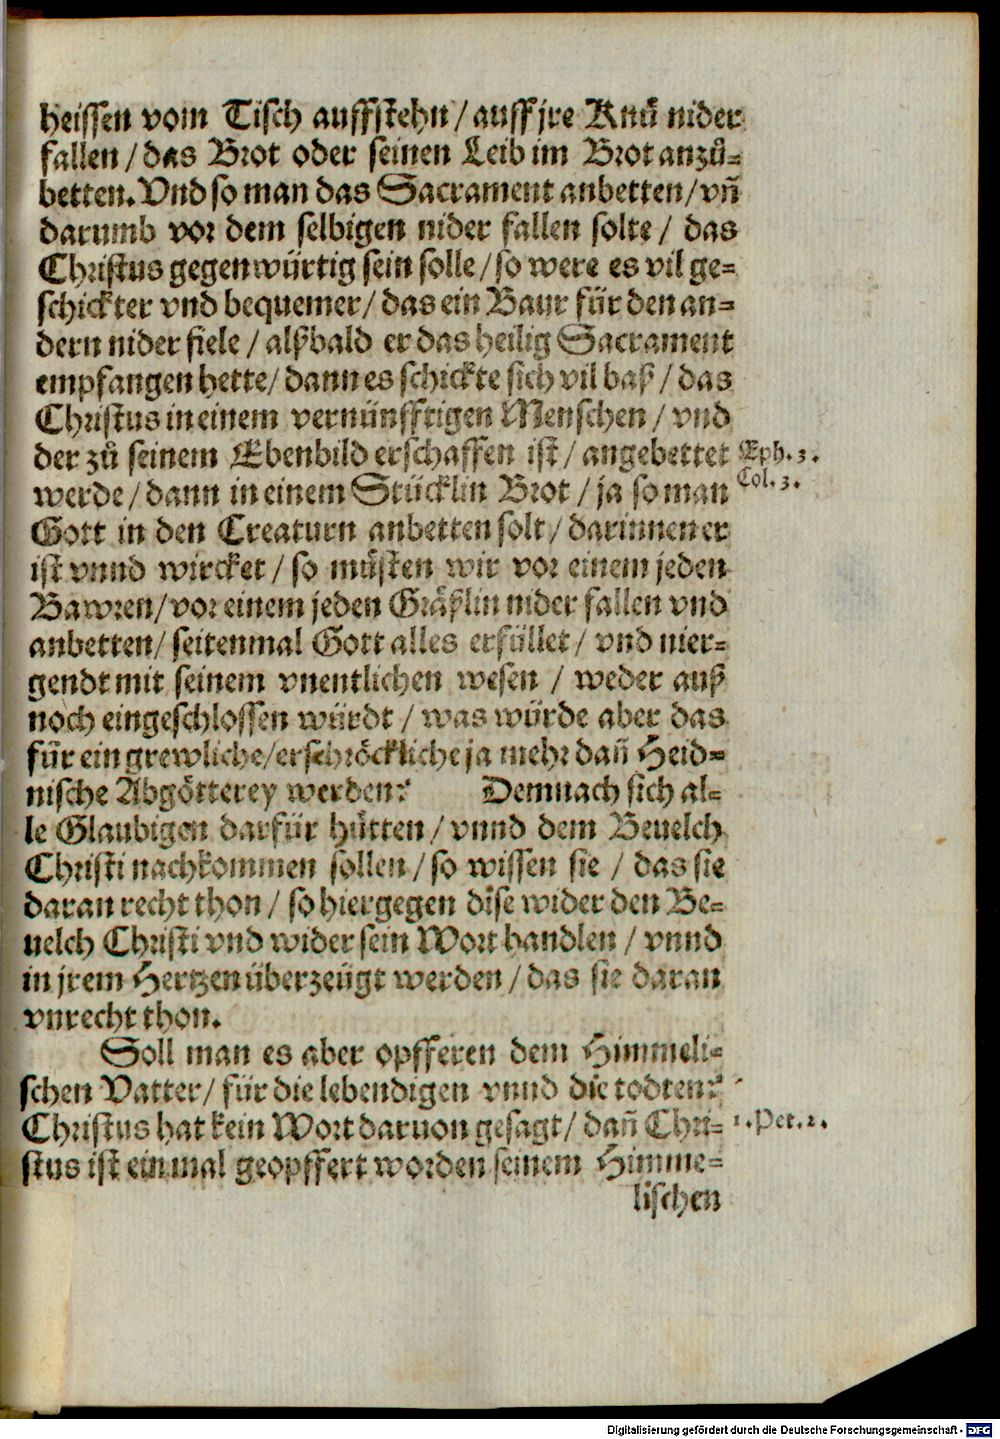 heissen vom Tisch auffstehn / auff jre Knuͤ nider
fallen / das Brot oder seinen Leib im Brot anzuͦ⸗
betten. Vnd so man das Sacrament anbetten / vñ
darumb vor dem selbigen nider fallen solte / das
Christus gegenwürtig sein solle / so were es vil ge⸗
schickter vnd bequemer / das ein Baur für den an⸗
dern nider fiele / alßbald er das heilig Sacrament
empfangen hette / dann es schickte sich vil baß / das
Christus in einem vernünfftigen Menschen / vnd
der zuͦ seinem Ebenbild erschaffen ist / angebettet
Eph. 3.
werde / dann in einem Stücklin Brot / ja so man
Col. 3.
Gott in den Creaturn anbetten solt / darinnen er
ist vnnd wircket / so muͤsten wir vor einem jeden
Bawren / vor einem jeden Graͤßlin nider fallen vnd
anbetten / seitenmal Gott alles erfüllet / vnd nier⸗
gendt mit seinem vnentlichen wesen / weder auß
noch eingeschlossen würdt / was würde aber das
für ein grewliche / erschroͤckliche ja mehr dañ Heid⸗
nische Abgoͤtterey werden? Demnach sich al⸗
le Glaubigen darfür huͤtten / vnnd dem Beuelch
Christi nachkommen sollen / so wissen sie / das sie
daran recht thon / so hiergegen dise wider den Be⸗
uelch Christi vnd wider sein Wort handlen / vnnd
in jrem Hertzen überzeügt werden / das sie daran
vnrecht thon.
Soll man es aber opfferen dem Himmeli⸗
schen Vatter / für die lebendigen vnnd die todten?
Christus hat kein Wort daruon gesagt / dañ Chri⸗
1. Pet. 2.
stus ist ein mal geopffert worden seinem Himme⸗
lischen
Digitalisierung gefördert durch die Deutsche Forschungsgemeinschaft - DFG